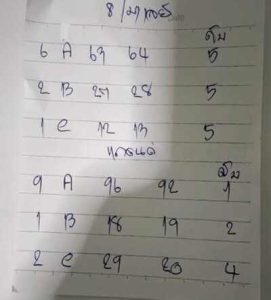 8/มาเลย์
ลับ
6 A 63 64 5
2 B 27 28 5
1 C 12 13 5
ลับ
9 A 96 92 1
1 B 18 19 2
2 C 29 20 4